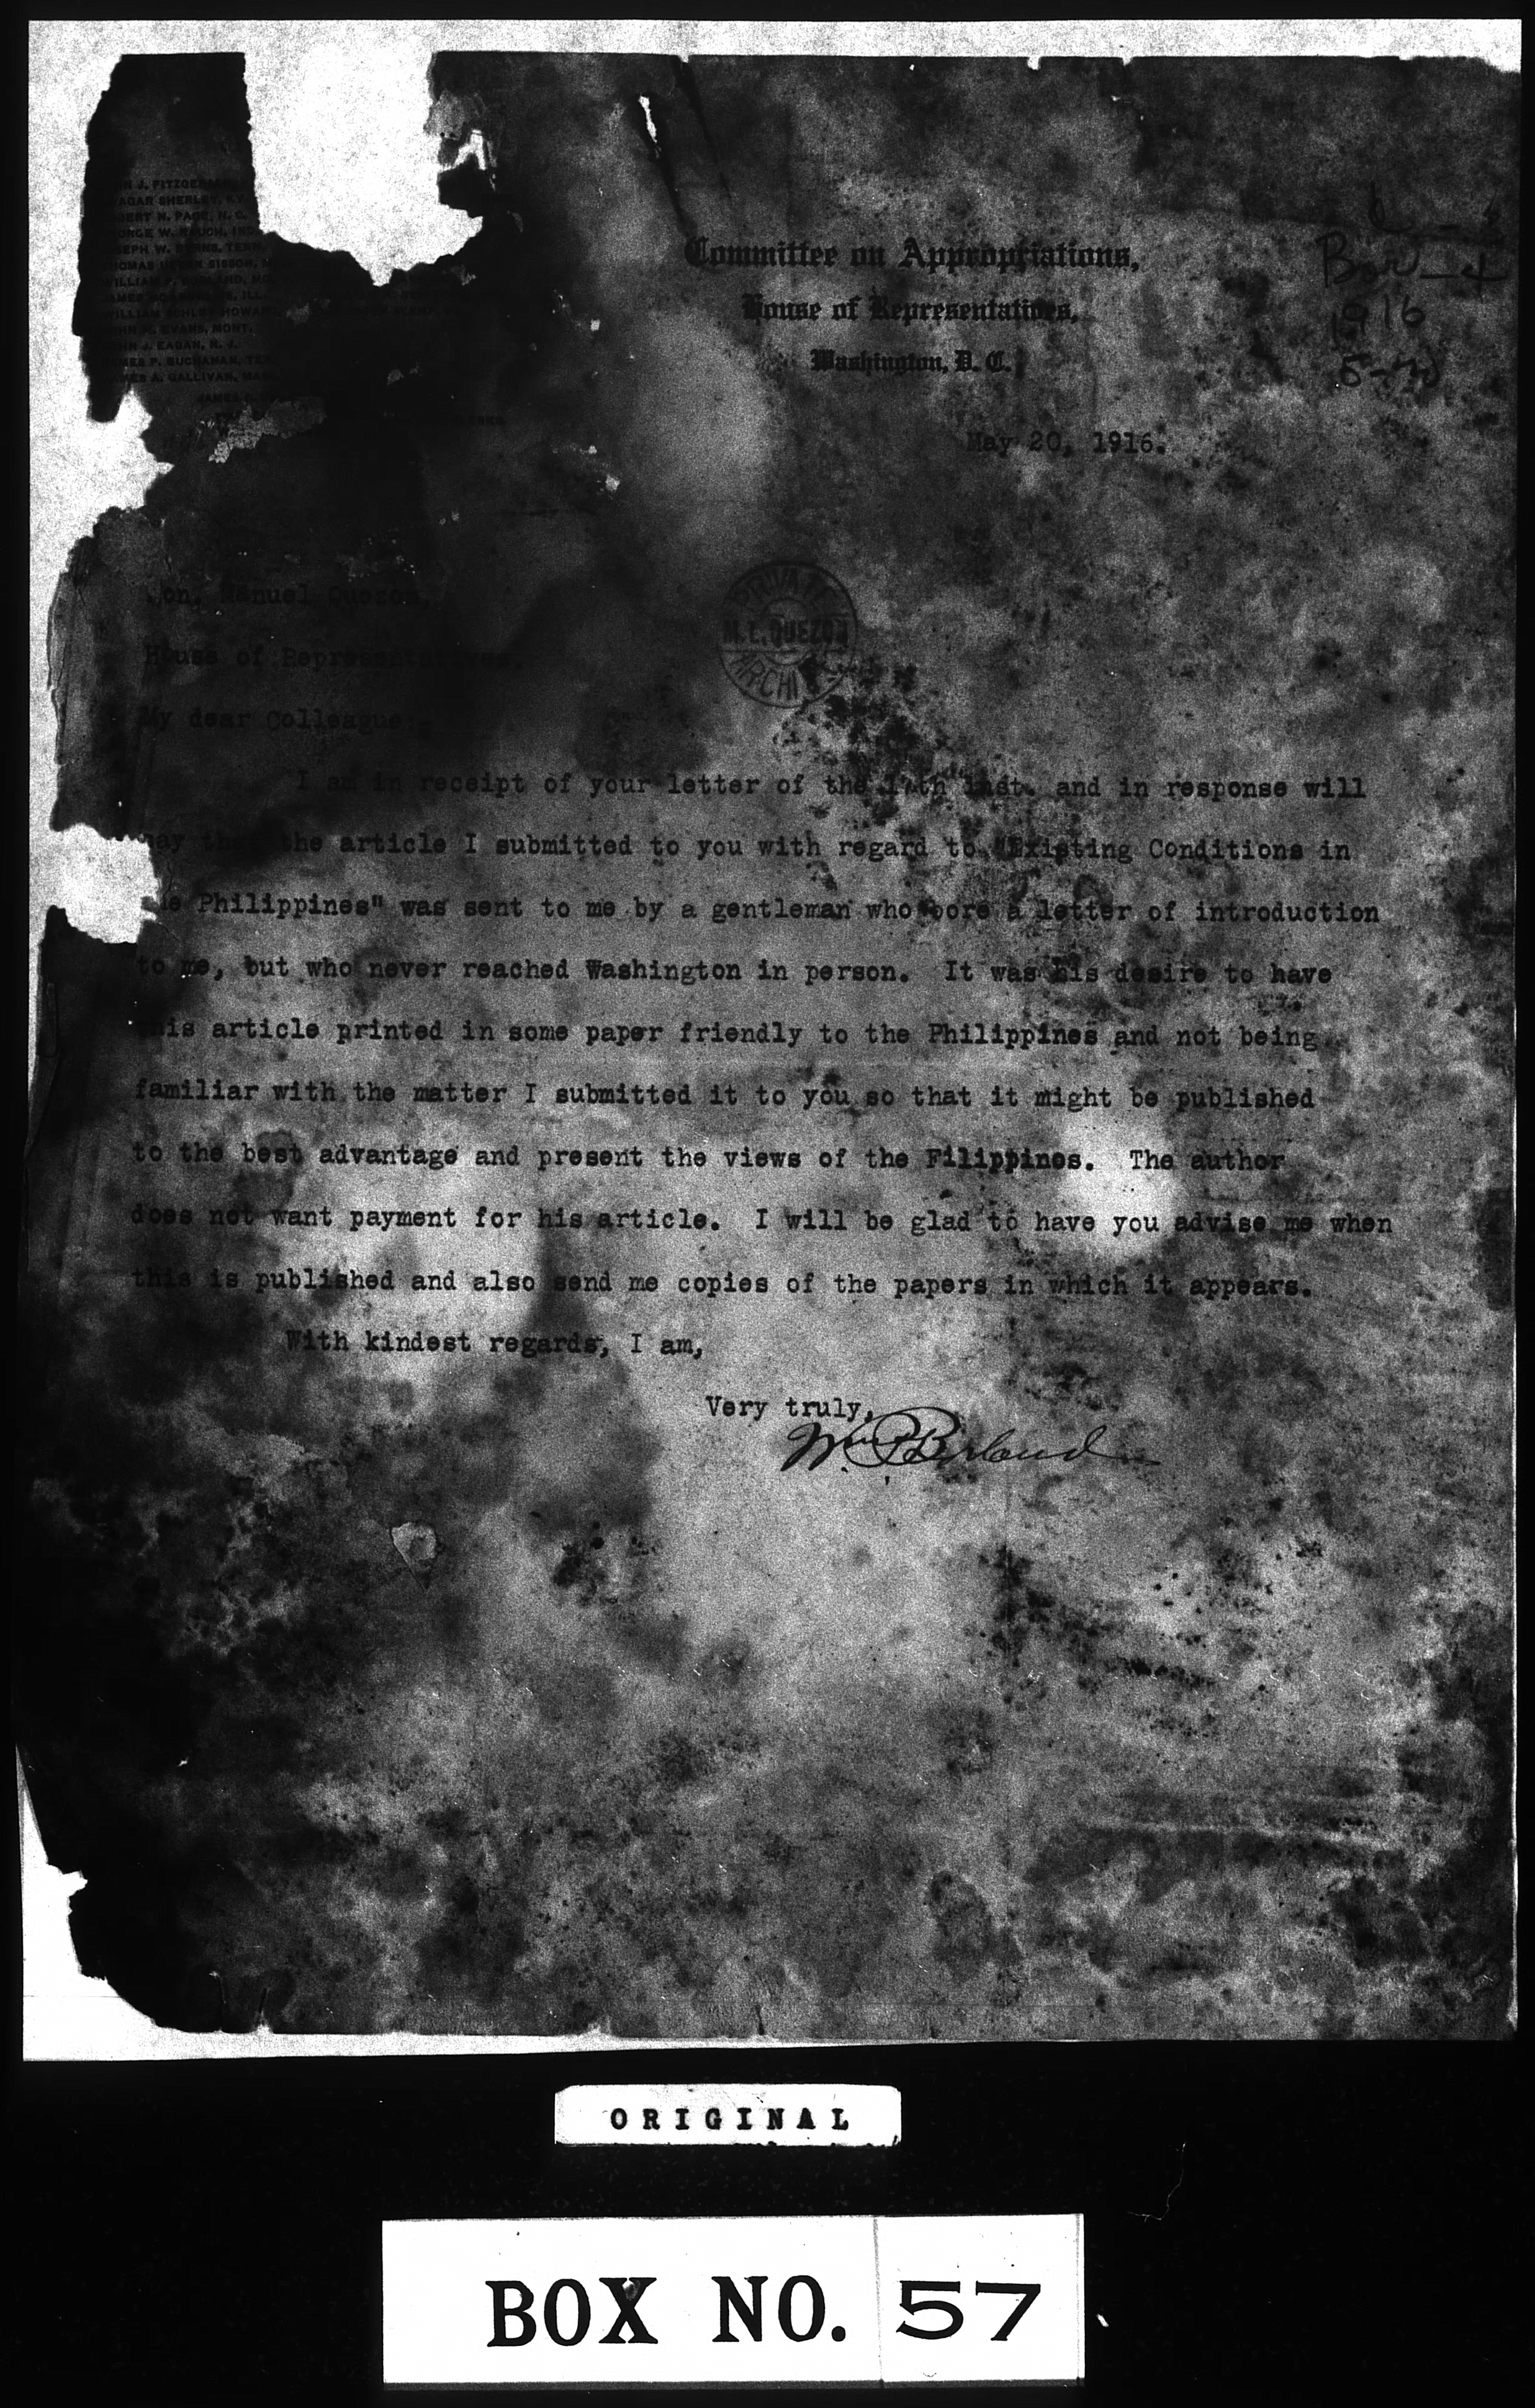 N J. FITZGE
AGAR SHERLEY, KY.
BERT N. PAGE, N. C.
ORGE W. RAUCH, IND.
SEPH W. BYRNS, TENN.
HOMAS SISSON, M
WILLIAM P. BORLAND, MO.
JAMES ILL.
WILLIAM SCHLEY HOWARD,
HN M. EVANS, MONT.
HN J. EAGAN, N. J.
MES P. BUCHANAN, TEX.
MES A. GALLIVAN, MASS.
JAMES
Committee on Appropriations,
House of Representatives,
Washington, D. C.
Bor-4
1916
5-20
May 20, 1916.
Hon. Manuel Quezon,
House of Representatives.
PRIVATE
M.L. QUEZON
ARCHI
My dear Colleague:-
I am in receipt of your letter of the 17th inst. and in response will
say that the article I submitted to you with regard to "Existing Conditions in
he Philippines" was sent to me by a gentleman who bore a letter of introduction
to me, but who never reached Washington in person. It was his desire to have
this article printed in some paper friendly to the Philippines and not being
familiar with the matter I submitted it to you so that it might be published
to the best advantage and present the views of the Filippines. The author
does not want payment for his article. I will be glad to have you advise me when
this is published and also send me copies of the papers in which it appears.
With kindest regards, I am,
Very truly,
Wm P Borland
ORIGINAL
BOX NO. 57